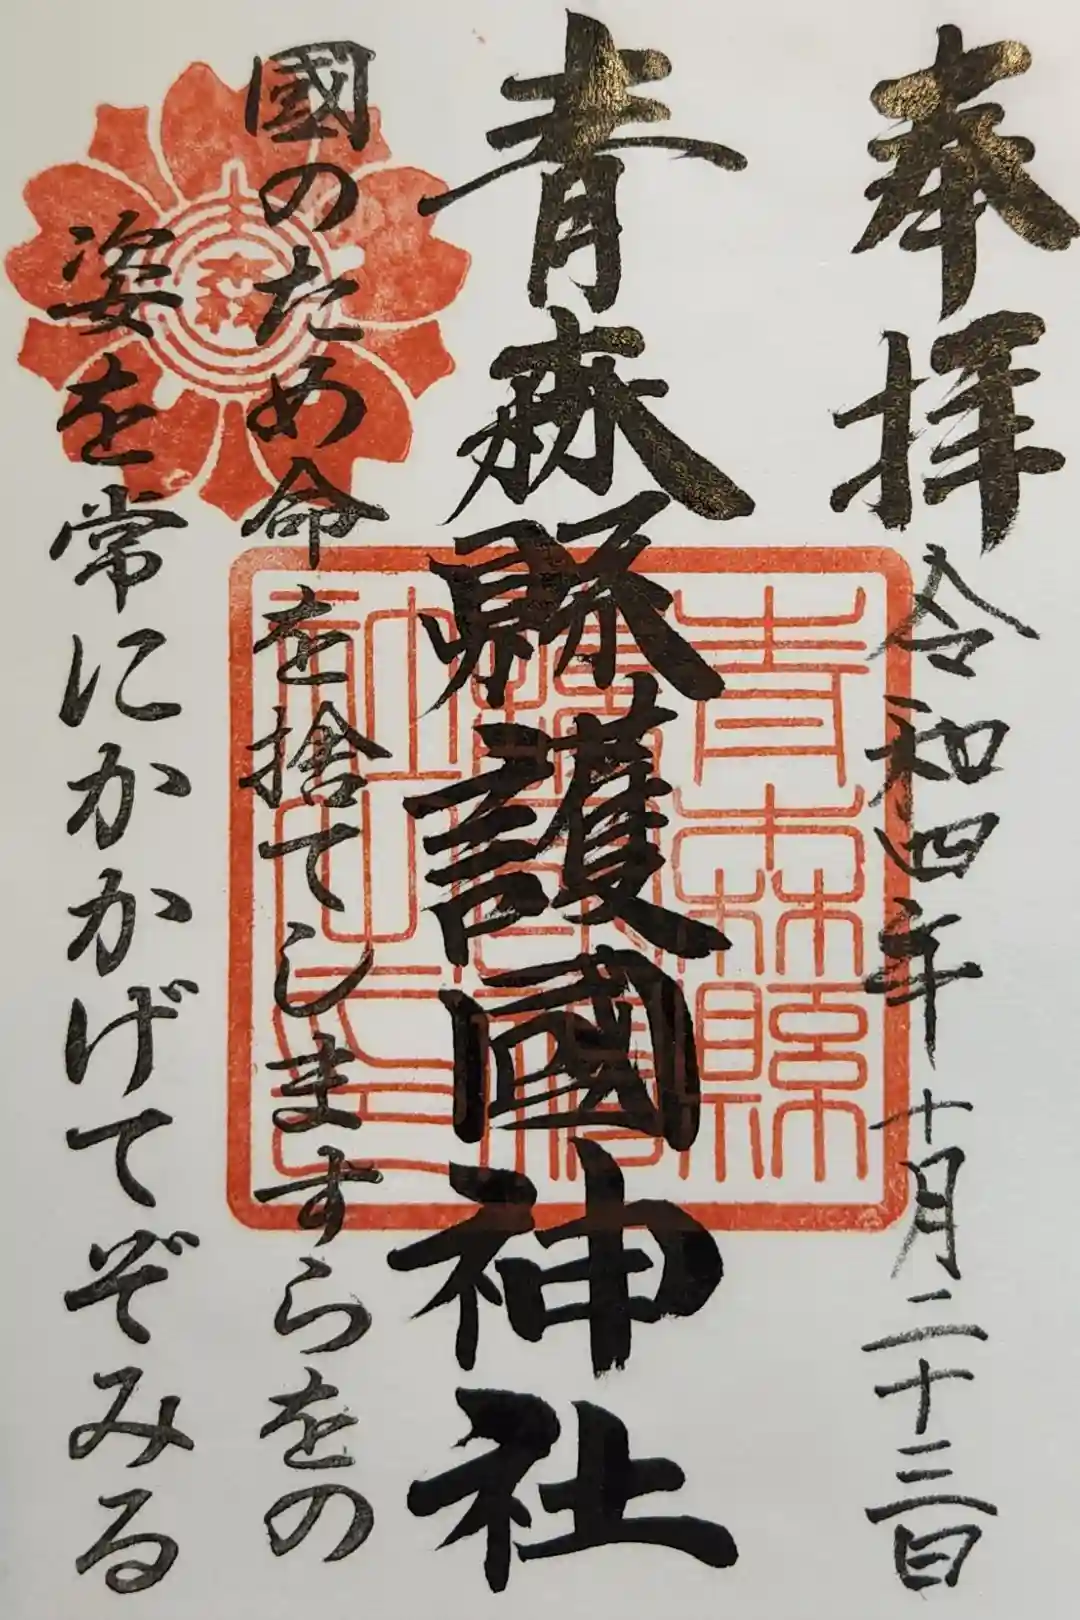 奉拝
令和四年十月二十三日
青森縣護國神社
國のため命を捨てしますらをの
姿を常にかかげてぞみる
青森縣
護國神
社之印
森